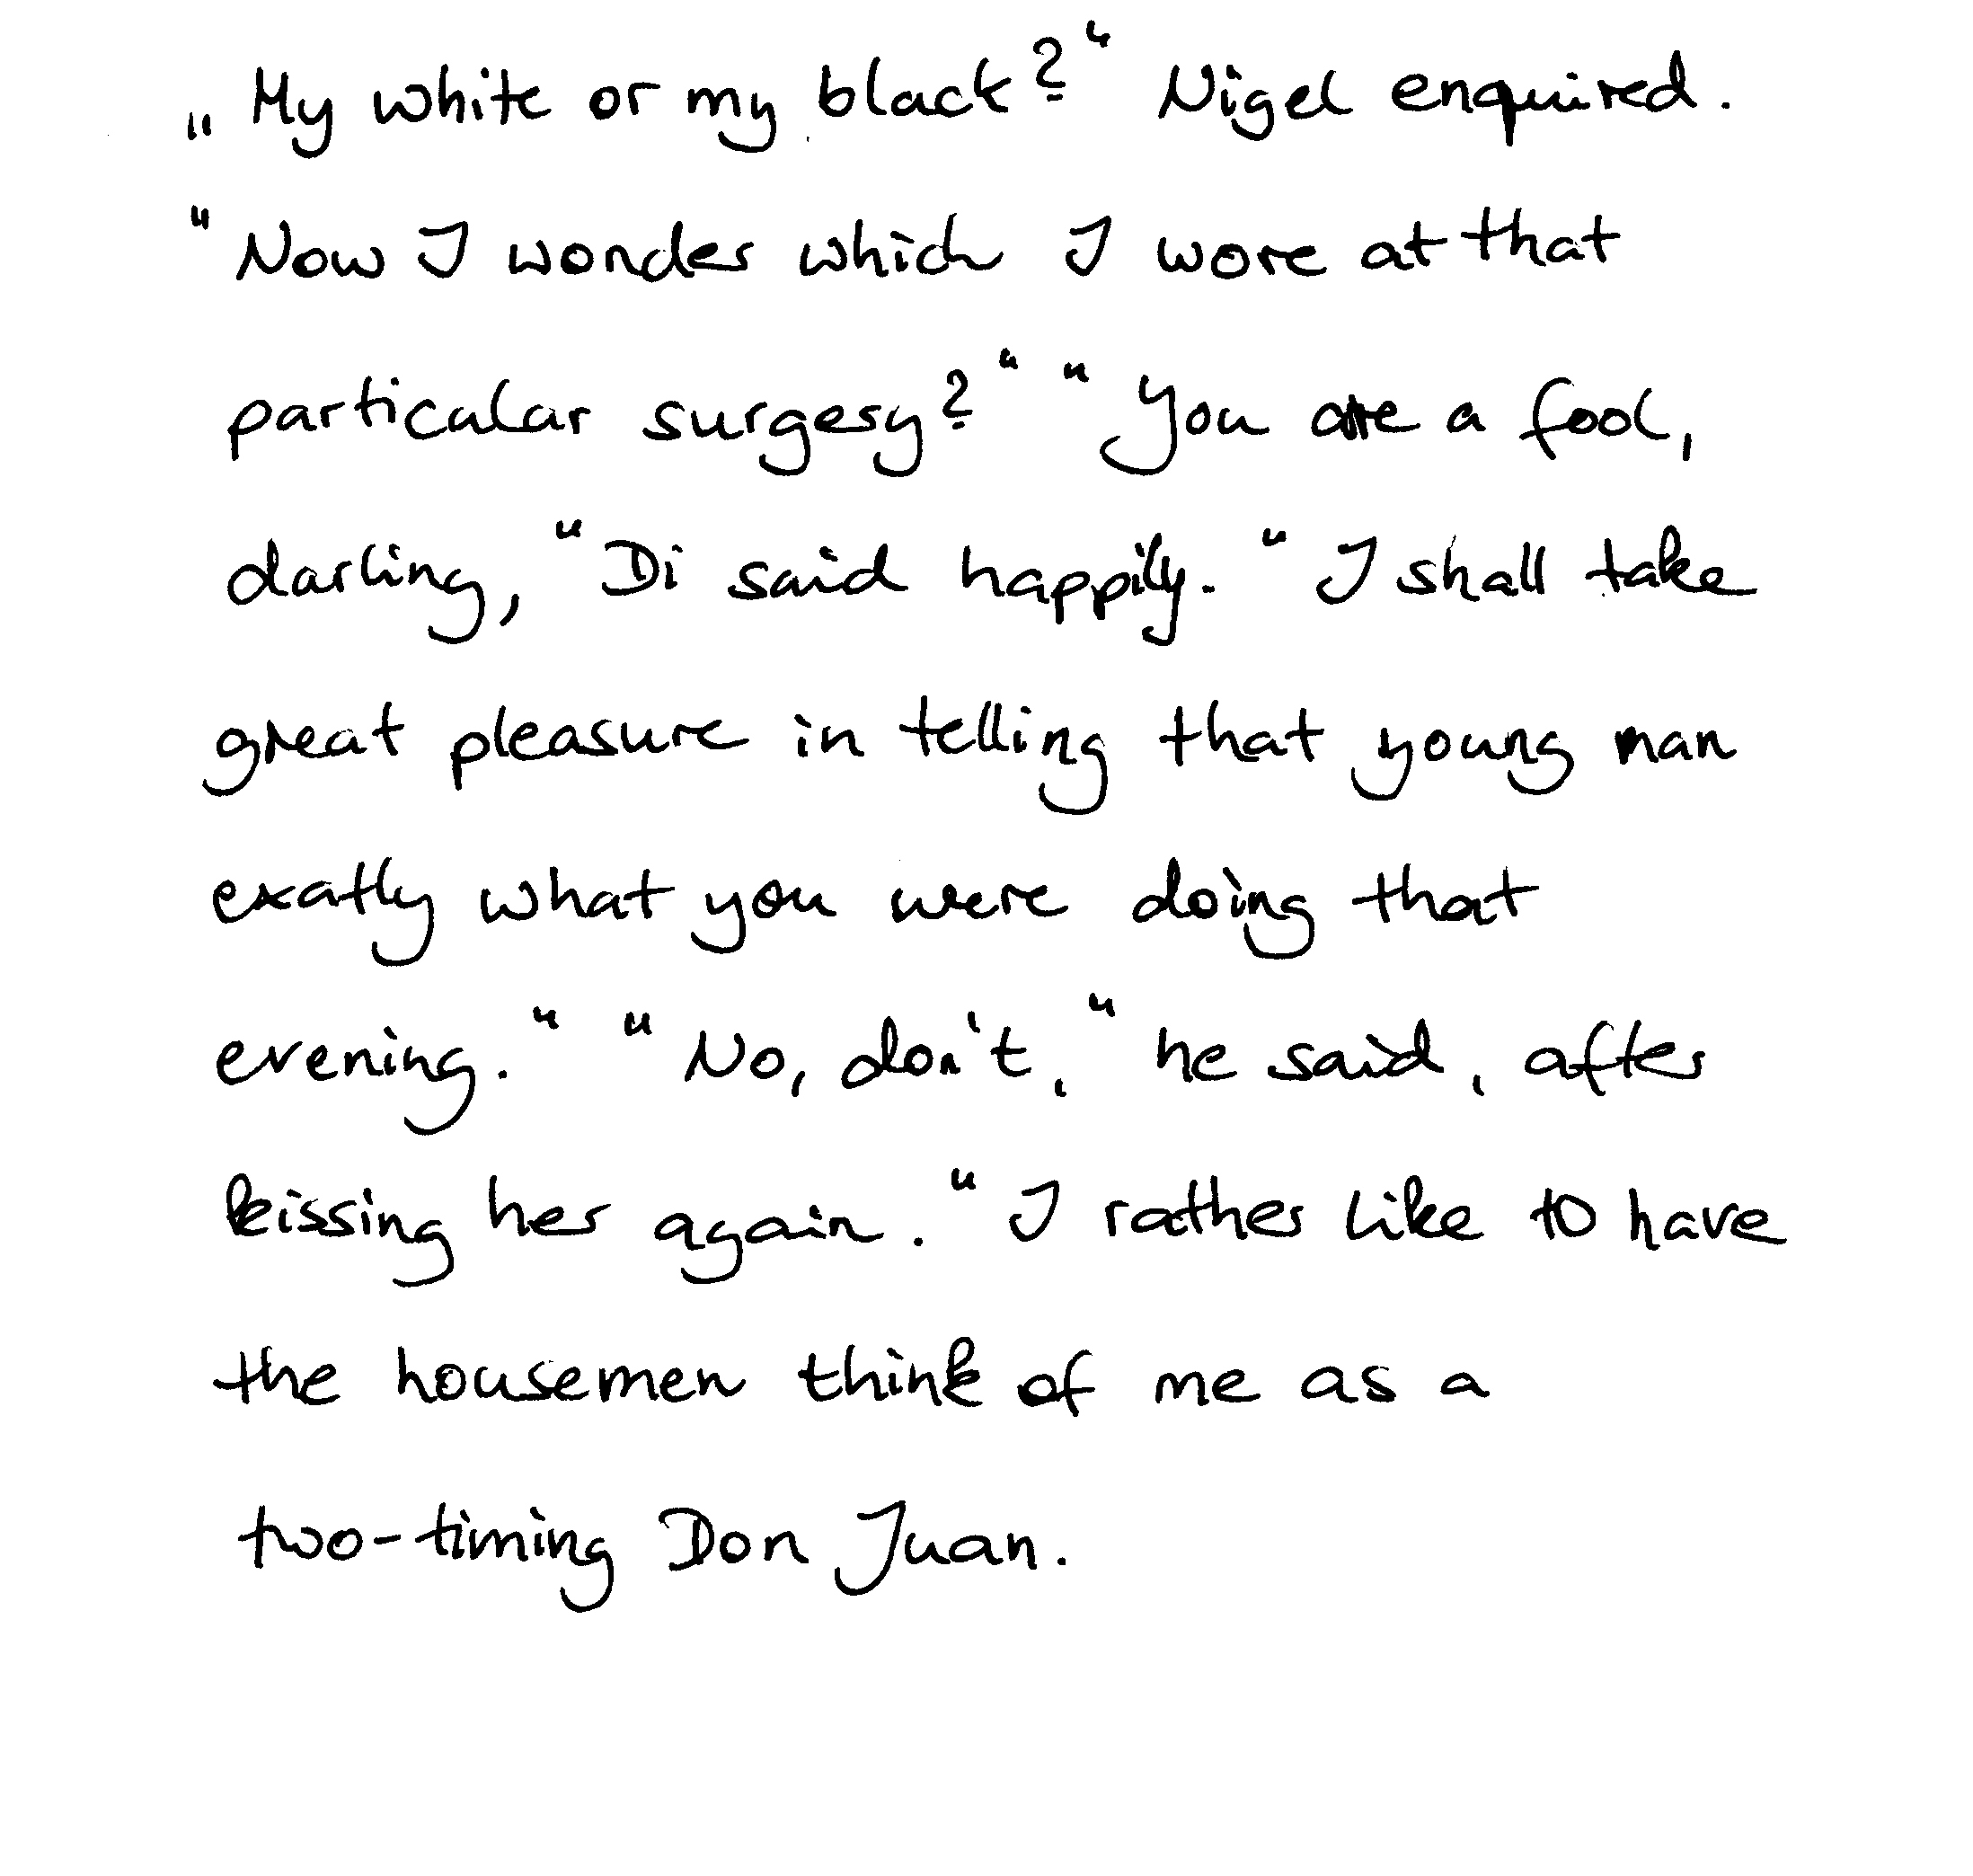 „My white or my black?“ Nigel enquired.
"Now I wonder which I wore at that
particular surgery?" "You are a fool,
darling," Di said happily. "I shall take
great pleasure in telling that young man
exatly what you were doing that
evening." "No, don't," he said, after
kissing her again. "I rather like to have
the housemen think of me as a
two-timing Don Juan.